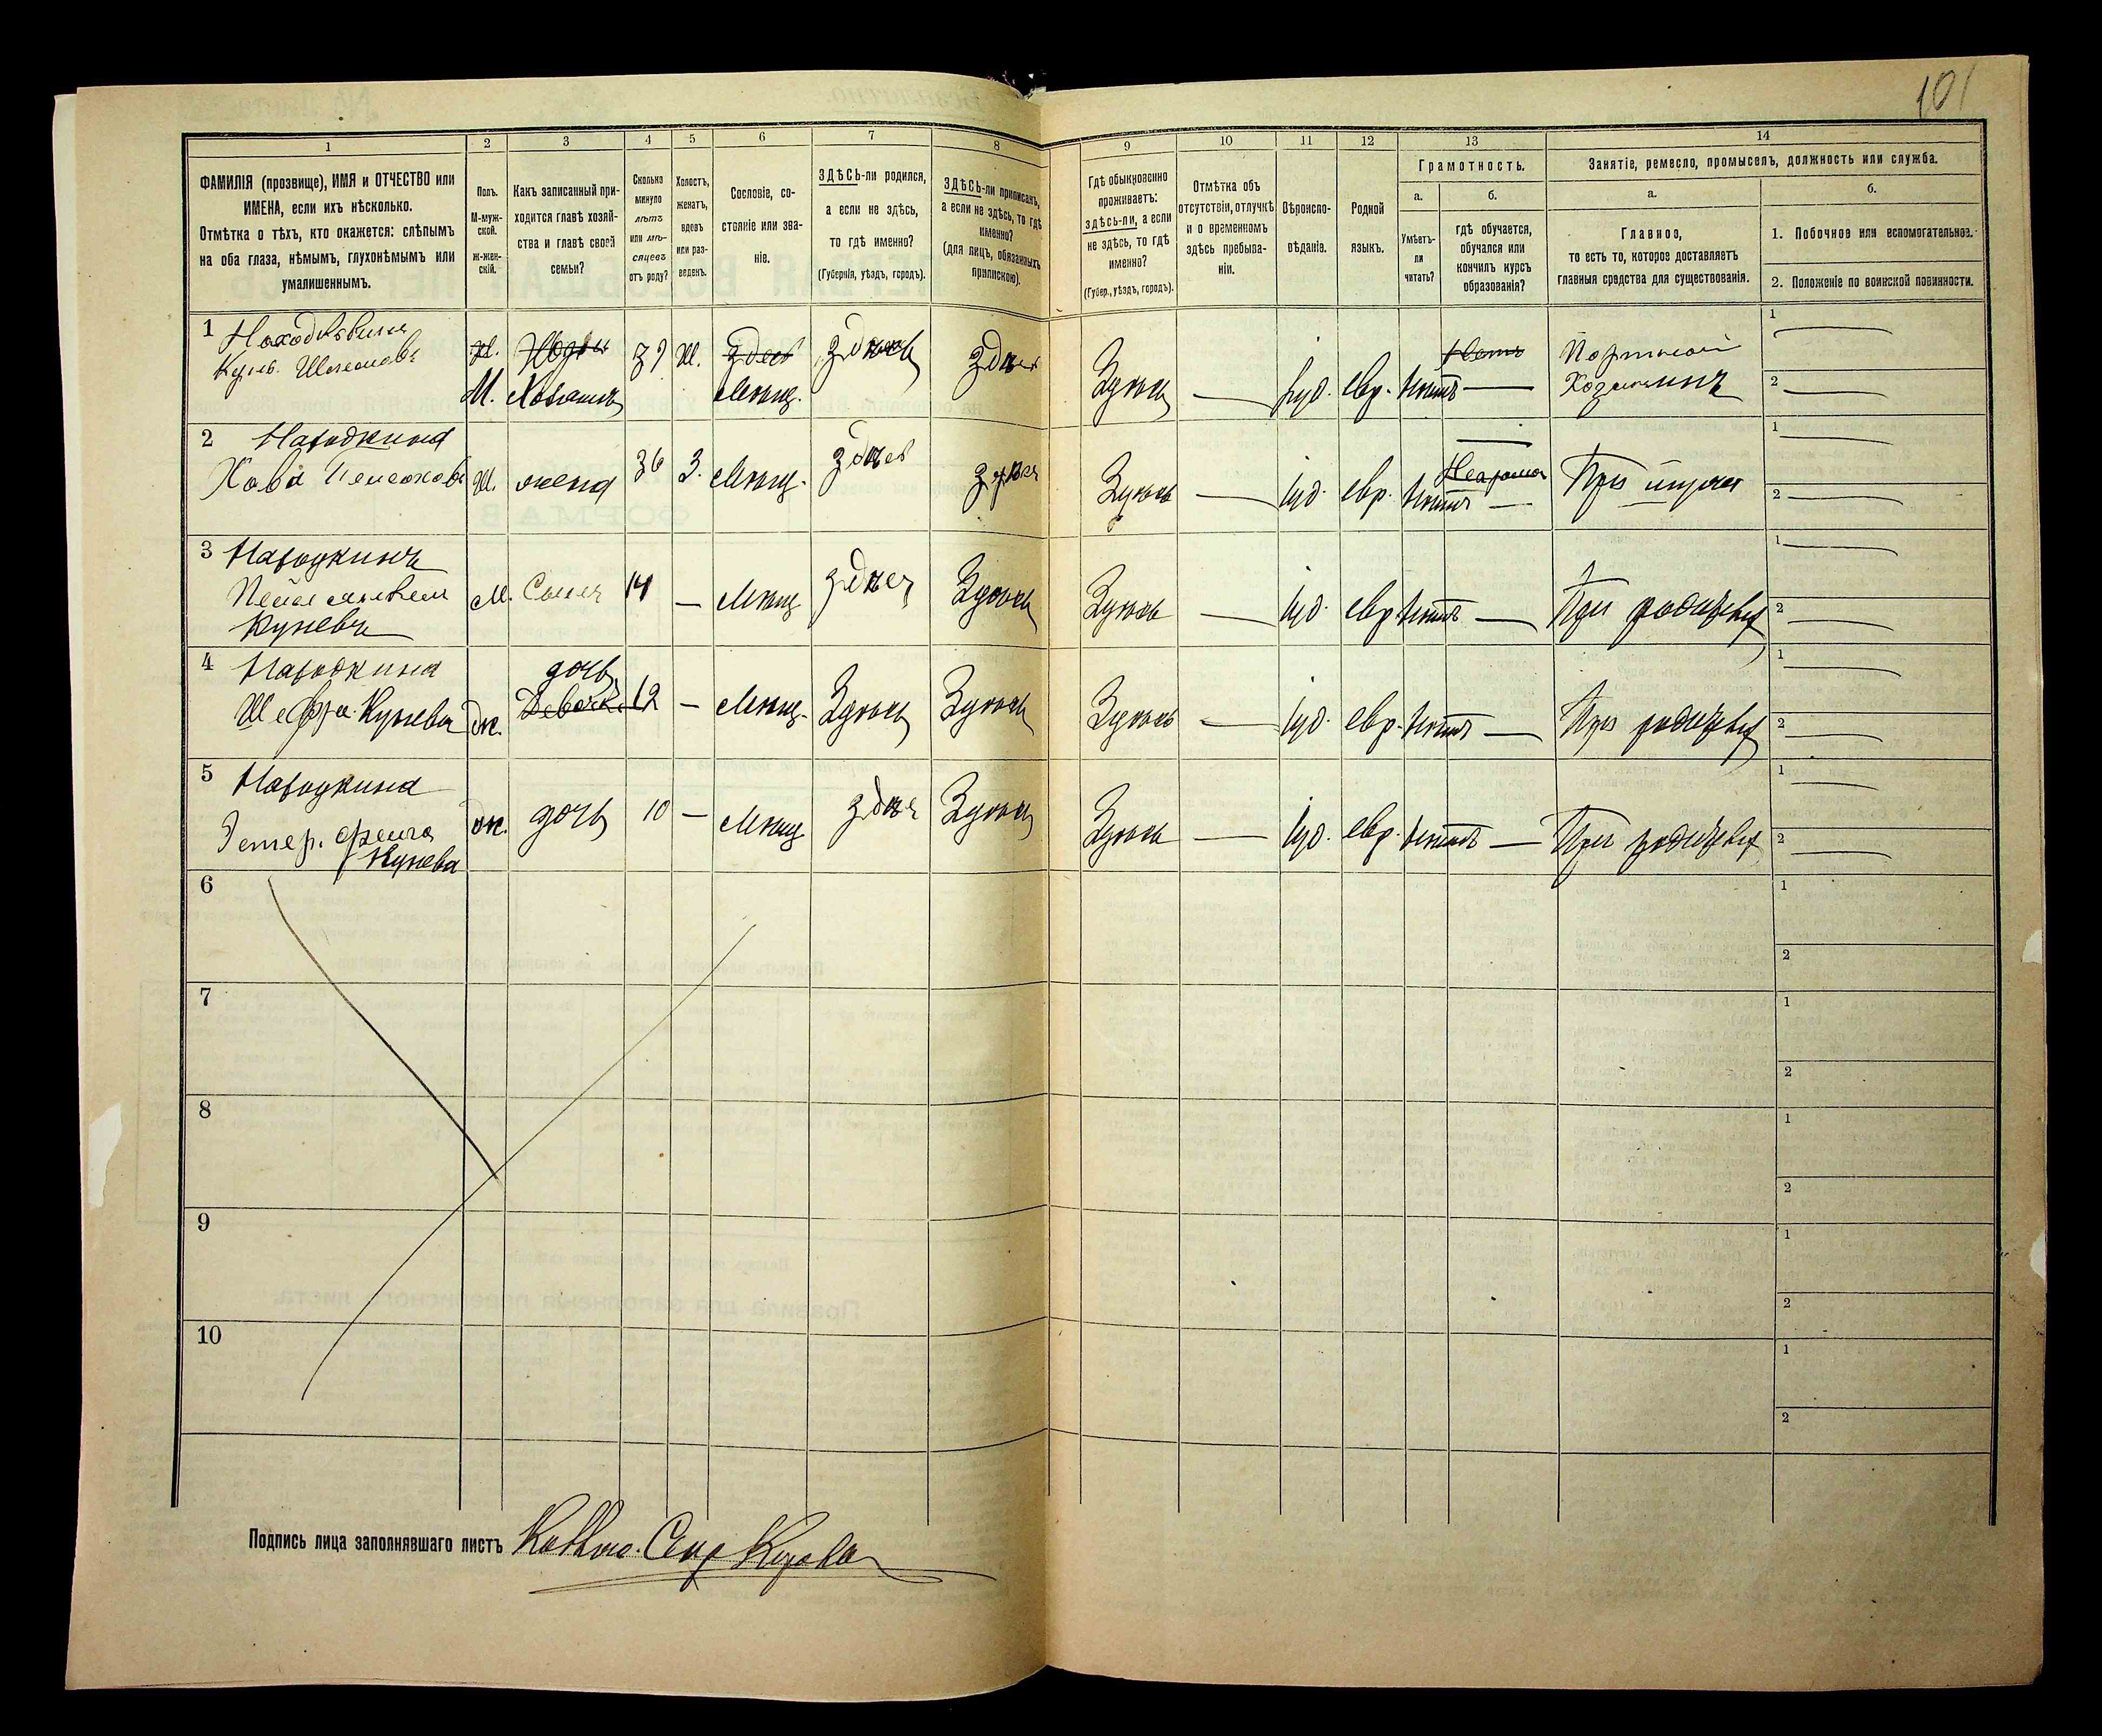 101
1 2 3 4 5 6 7 8 9 10 11 12 13 14
ФАМИЛІЯ (прозвище), ИМЯ и ОТЧЕСТВО или
ИМЕНА, если ихъ нѣсколько.
Отмѣтка о тѣхъ, кто окажется: слѣпымъ
на оба глаза, нѣмымъ, глухонѣмымъ или
умалишеннымъ.
Полъ.
М-муж-
ской.
Ж-жен-
скій.
Какъ записанный при-
ходится главѣ хозяй-
ства и главѣ своей
семьи?
Сколько
минуло
лѣтъ
или мѣ-
сяцевъ
отъ роду?
Холостъ,
женатъ,
вдовъ
или раз-
веденъ.
Сословіе, со-
стояніе или зва-
ніе.
ЗДѢСЬ-ли родился,
а если не здѣсь,
то гдѣ именно?
(Губернія, уѣздъ, городъ).
ЗДѢСЬ-ли приписанъ,
а если не здѣсь, то гдѣ
именно?
(для лицъ, обязанныхъ
припискою).
Гдѣ обыкновенно
проживаетъ:
здѣсь-ли, а если
не здѣсь, то гдѣ
именно?
(Губер., уѣздъ, городъ).
Отмѣтка объ
отсутствіи, отлучкѣ
и о временномъ
здѣсь пребыва-
ніи.
Вѣроиспо-
вѣданіе.
Родной
языкъ.
Грамотность.
а.
Умѣетъ-
ли
читать?
б.
гдѣ обучается,
обучался или
кончилъ курсъ
образованія?
Занятіе, ремесло, промыселъ, должность или служба.
а.
Главное,
то есть то, которое доставляетъ
главныя средства для существованія.
б.
1. Побочное или вспомогательное.
2. Положеніе по воинской повинности.
1
М. Хозяинъ 37 Мѣщ. здѣсь здѣсь Здѣсь — Іуд. евр. нѣтъ — Портной
Хозяинъ
1
2
2 Находкина
Хава Ж. жена 36 З. Мѣщ. здѣсь здѣсь Здѣсь — Іуд. евр. нѣтъ — При мужѣ
1
2
3 Находкинъ
Куневъ М. Сынъ 14 — Мѣщ здѣсь Здѣсь Здѣсь — Іуд. евр нѣтъ — При родителях
1
2
4 Находкина
Шефра Кунева ж. дочь 12 — Мѣщ. Здѣсь Здѣсь Здѣсь — Іуд. евр. нѣтъ — При родителях
1
2
5 Находкина
Эстер. Фейга
Кунева ж. дочь 10 — Мѣщ здѣсь Здѣсь Здѣсь — Іуд. евр. нѣтъ — При родителях
1
2
6
1
2
7
1
2
8
1
2
9
1
2
10
1
2
Подпись лица заполнявшаго листъ